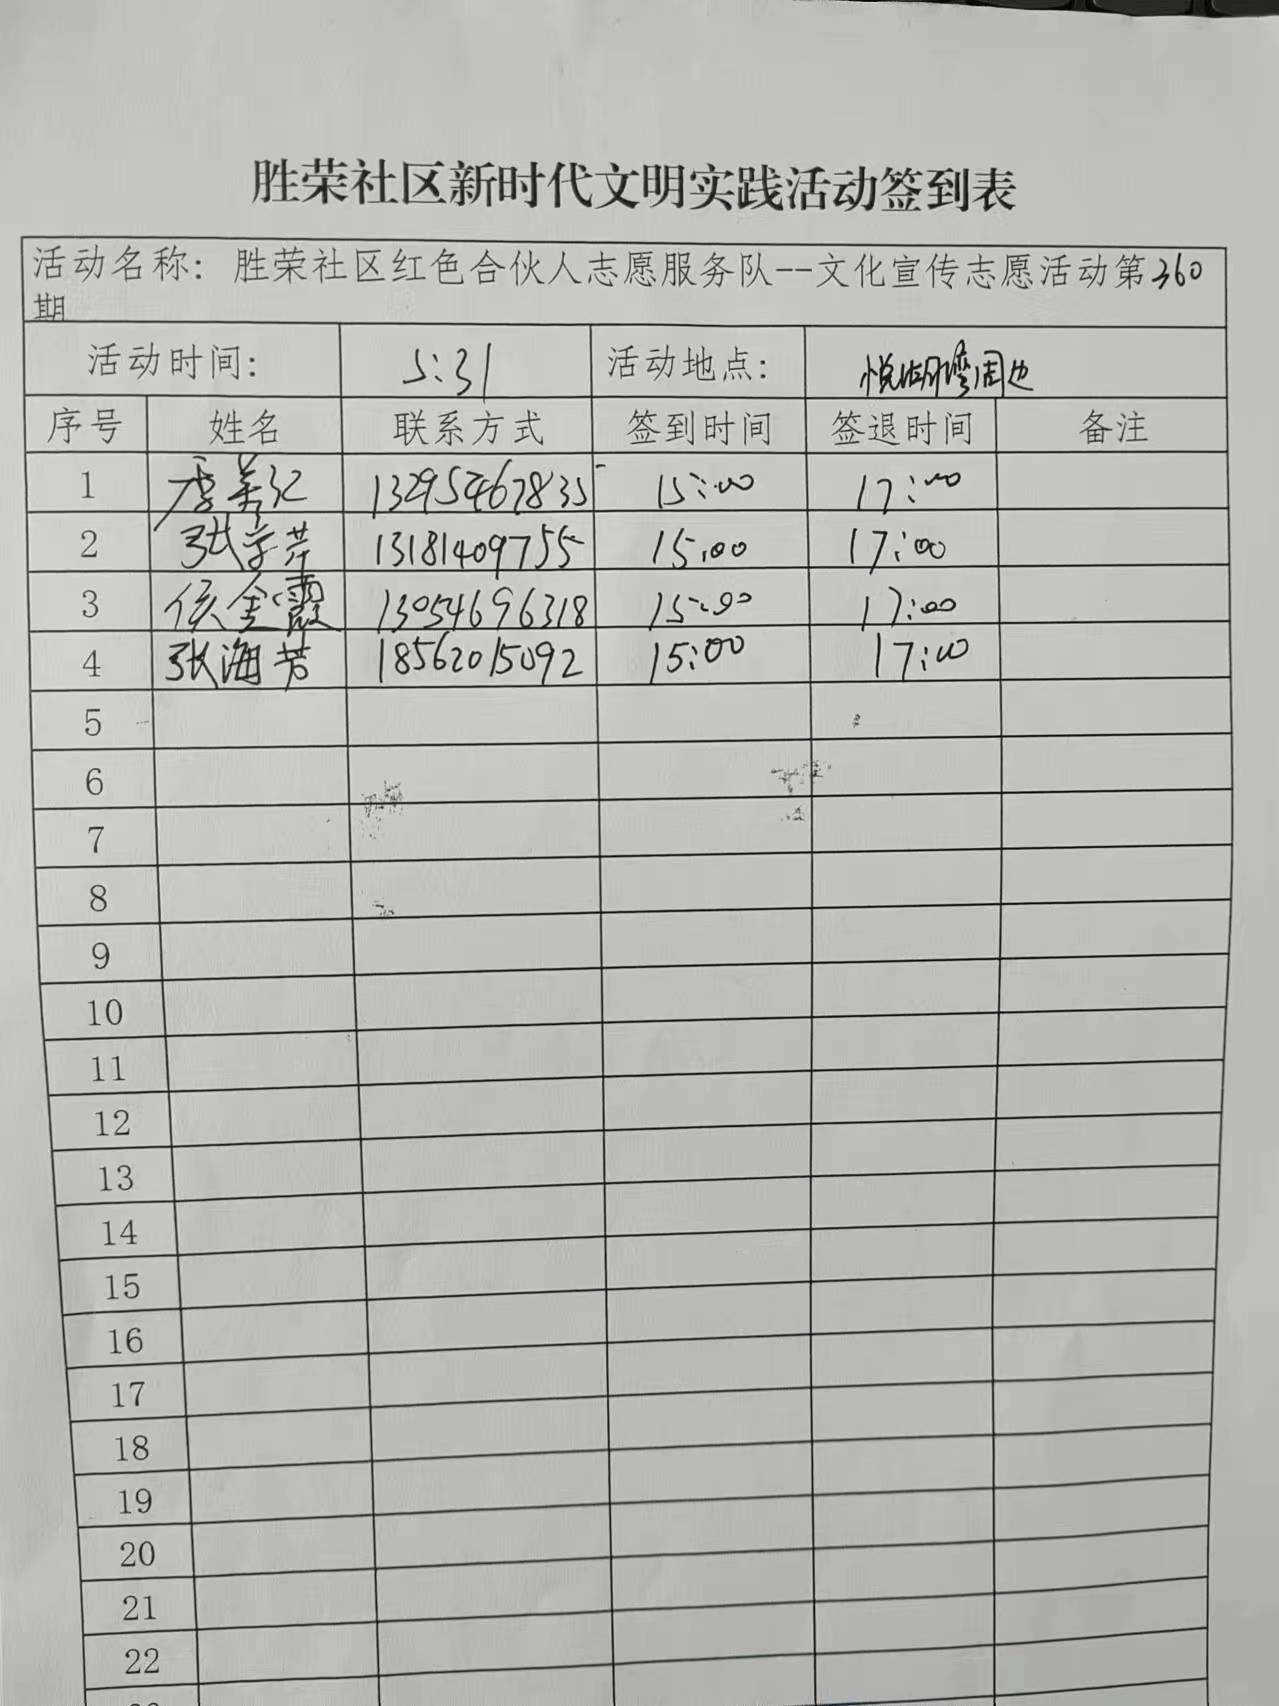 胜荣社区新时代文明实践活动签到表
活动名称：胜荣社区红色合伙人志愿服务队--文化宣传志愿活动第360
期
活动时间： 5:31 活动地点： 悦湖湾周边
序号 姓名 联系方式 签到时间 签退时间 备注
1 李美红 13295467835 15:00 17:00
2 张学芹 13181409755 15:00 17:00
3 侯金霞 13054696318 15:00 17:00
4 张海芳 18562015092 15:00 17:00
5
6
7
8
9
10
11
12
13
14
15
16
17
18
19
20
21
22